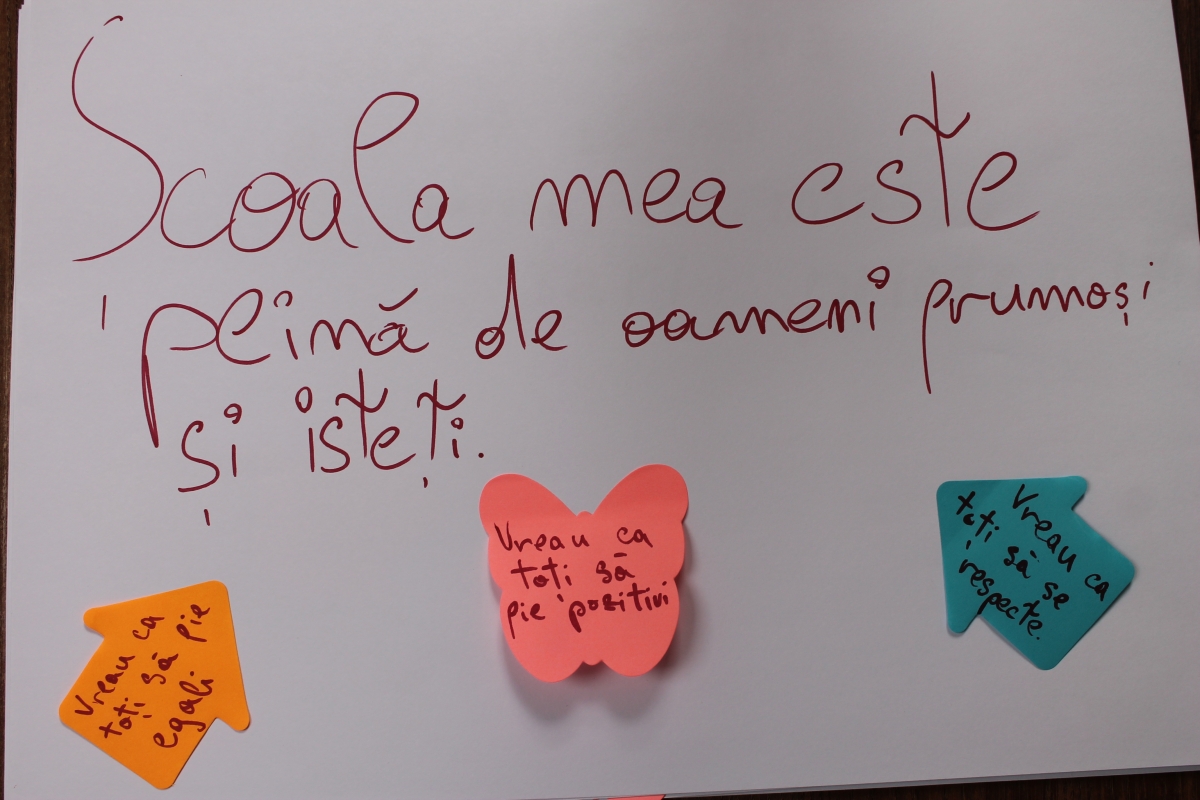 Scoala mea este
plină de oameni frumoși
și isteți.
Vreau ca
toți să fie
egali
Vreau ca
toți să
fie pozitivi
Vreau ca
toți să se
respecte.